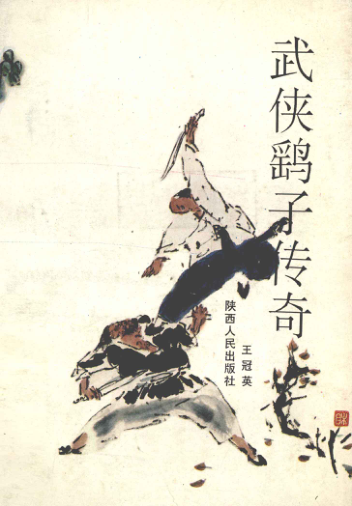 武侠鹞子传奇
王冠英
陕西人民出版社